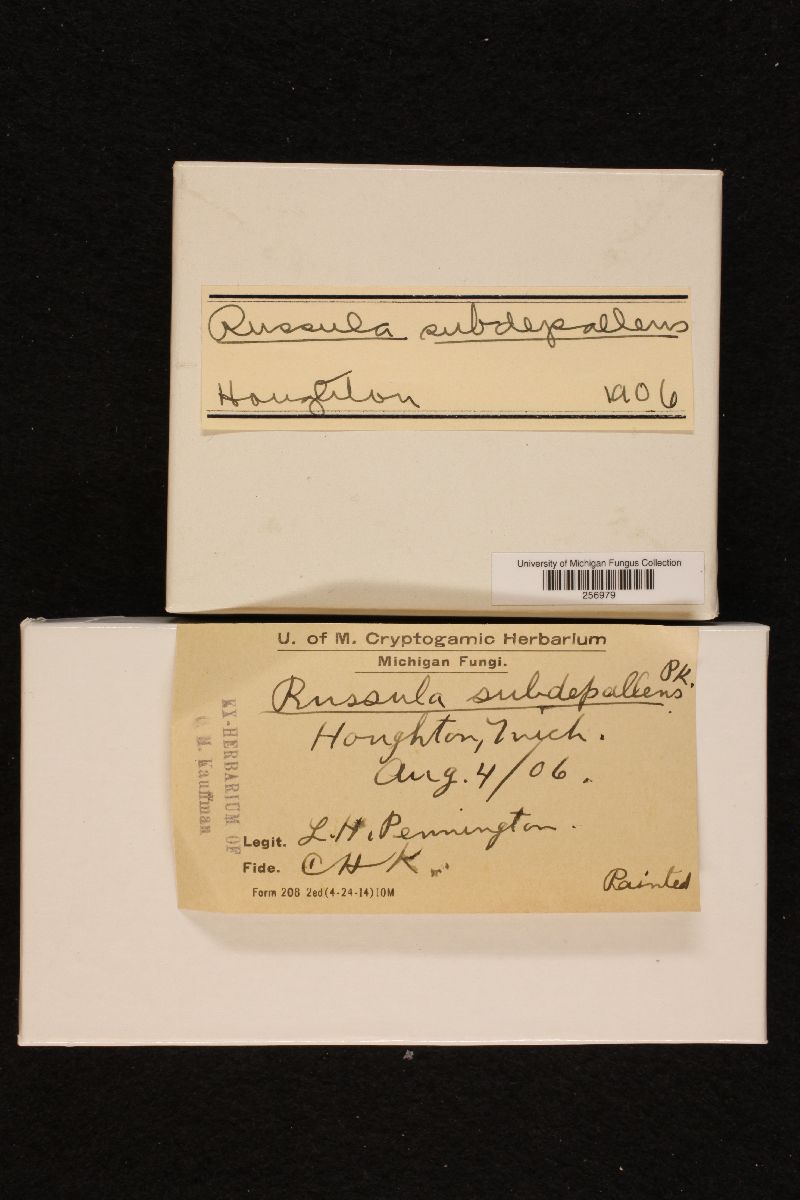 Russula subdepallens
Houghton 1906
University of Michigan Fungus Collection
256979
U. of M. Cryptogamic Herbarium
Michigan Fungi.
Russula subdepallens Pk.
Houghton, Mich.
Aug. 4/06.
Legit. L.H. Pennington.
Fide. C H K.
Form 208 2ed(4-24-14)10M
Painted
EX-HERBARIUM OF
C. H. Kauffman